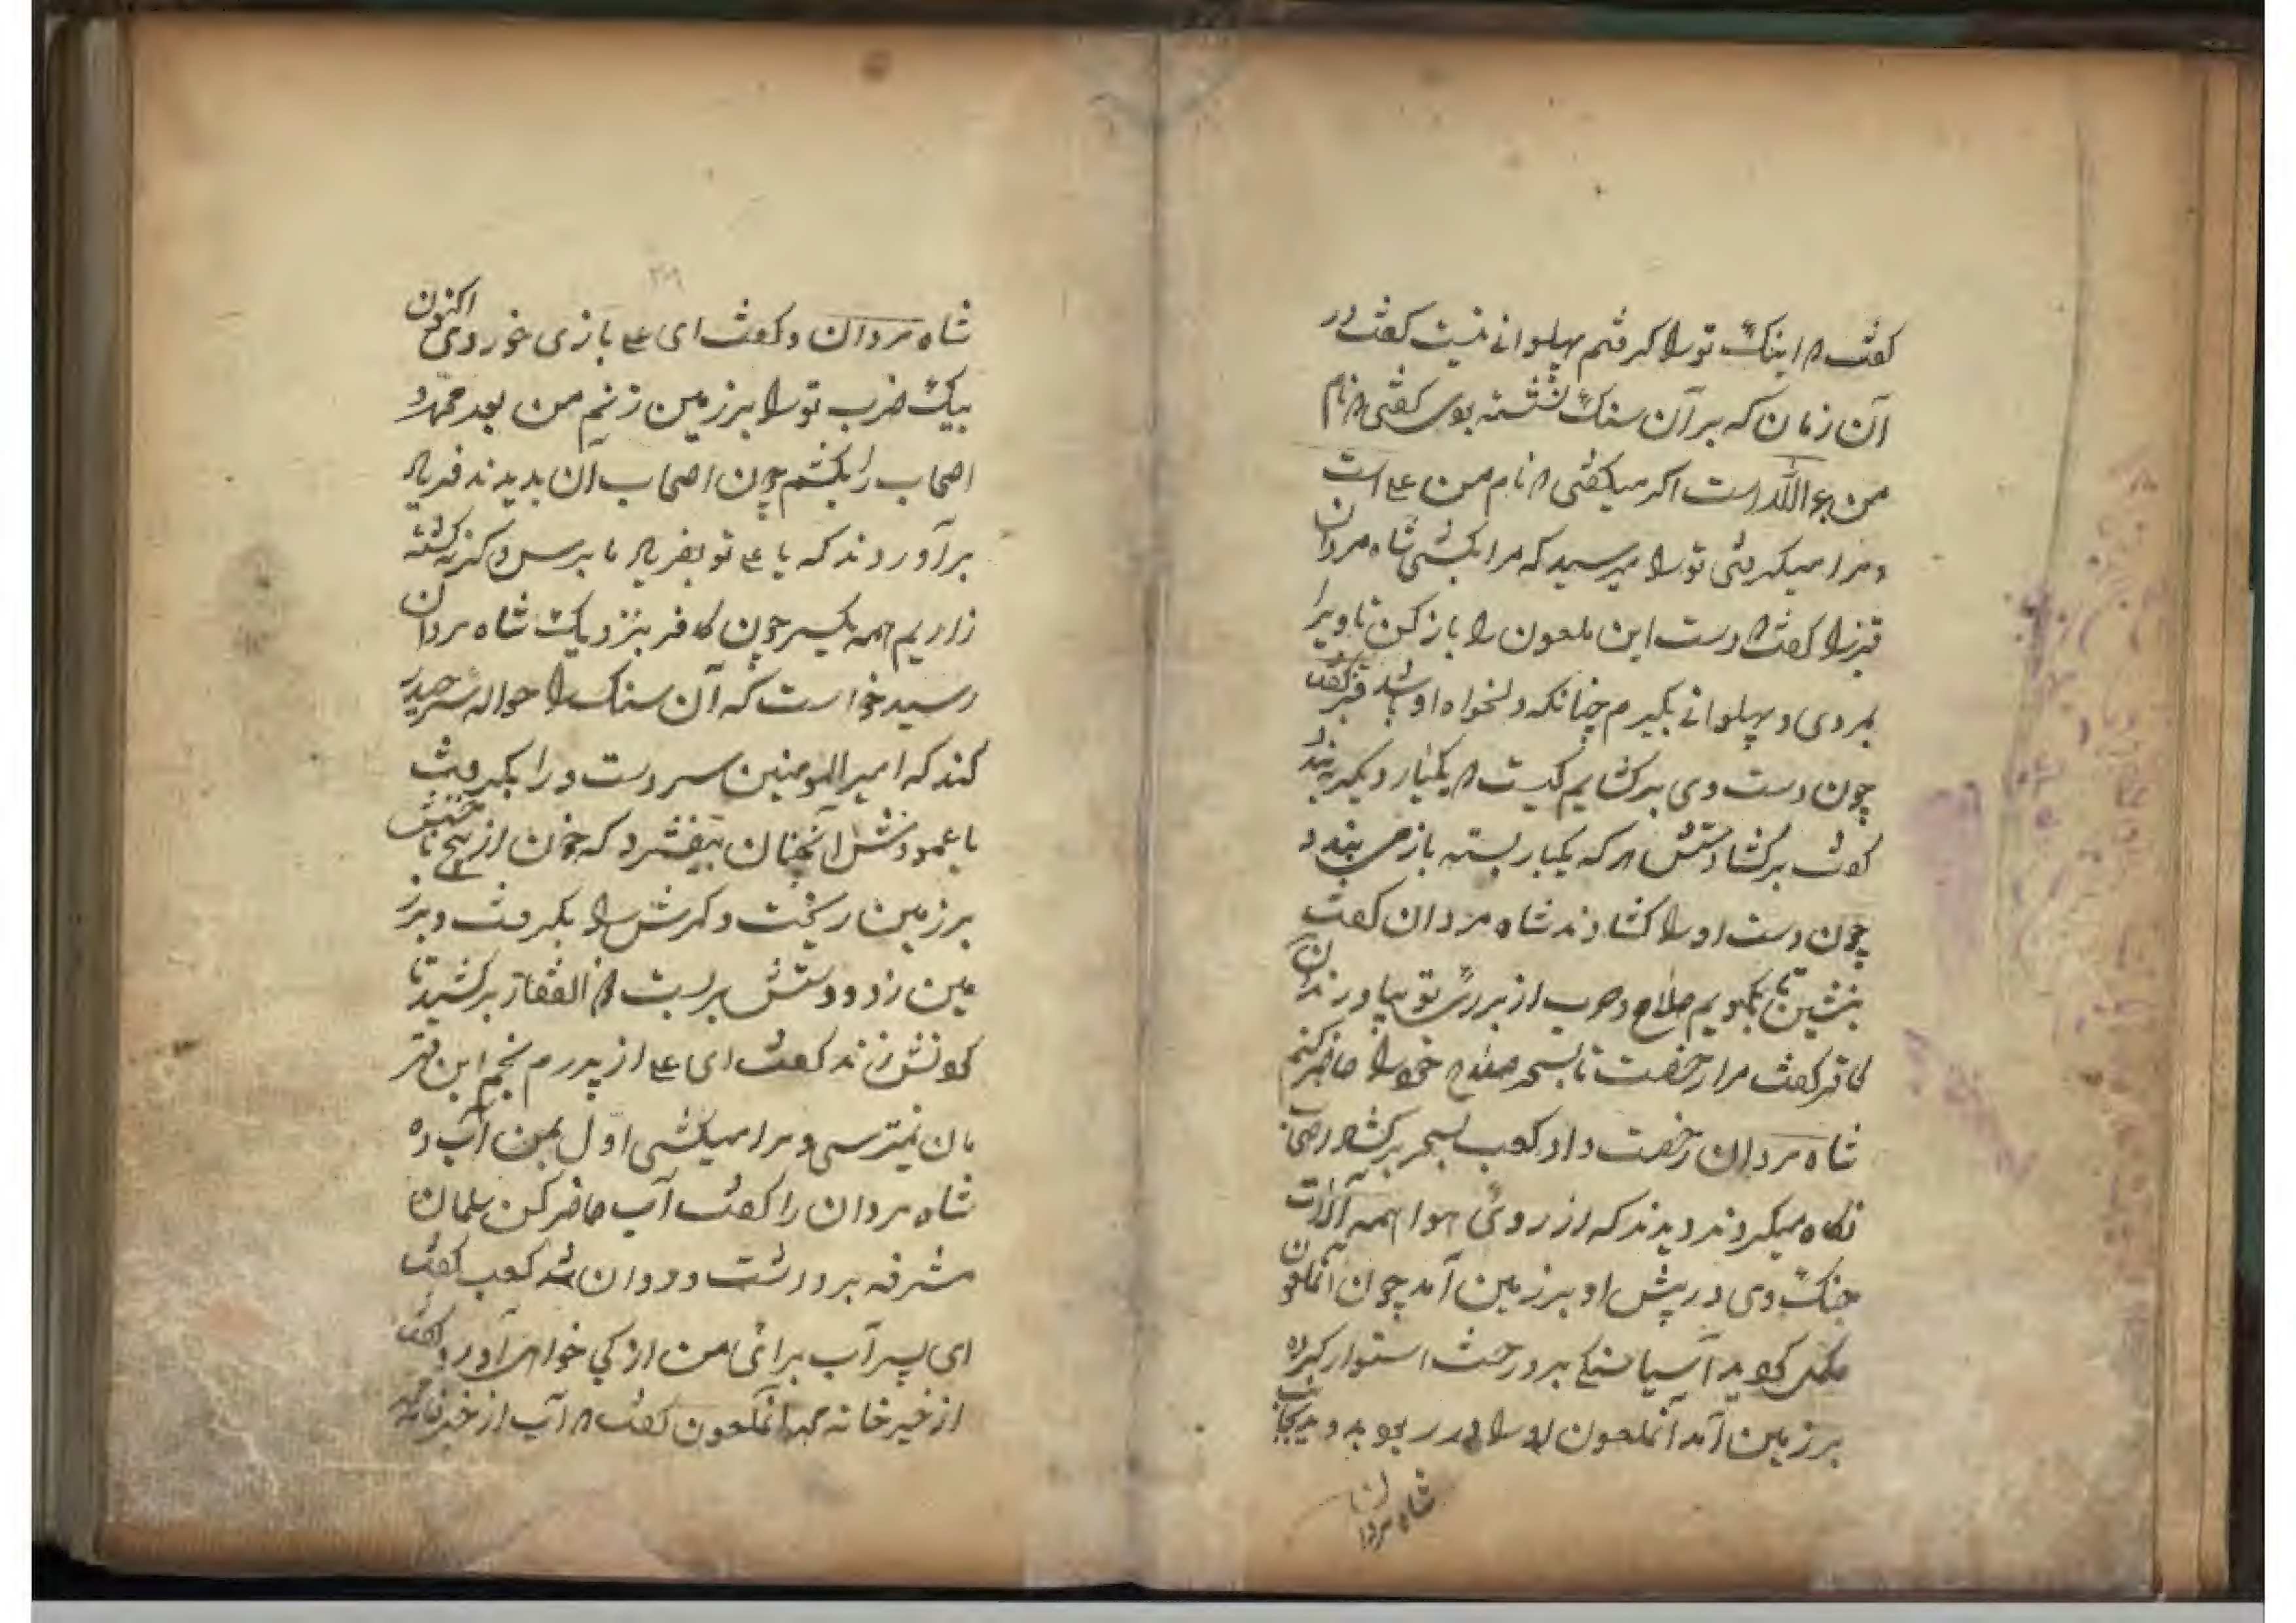 گفت که اینک تو را گرفتم پهلوانی نیست گفت در
آن زمان که بر آن سنک نشسته بودی گفتی که نام
من عبدالله است اگر میگفتی که نام من علی است
و مرا میگرفتی تو را میرسید که مرا بکشی شاه مردان
قنبر را گفت که دست این ملعون را باز کن تا ویرا
بمردی و پهلوانی بگیرم چنانکه دلخواه او باشد قنبر گفت
چون دست وی برکشایم کیست که یکبار دیگر ببندد
گفت برکشا دستش هر که یکبار بسته باز می بندد
چون دست او را کشادند شاه مردان گفت
بنشین تا بگویم صلاح و حرب از برای تو بیاورند آن
کافر گفت مرا رخصت تا بسحر صلاح خود را حاضر کنم
شاه مردان رخصت داد کعب بسحر اصحاب
نگاه میکردند دیدند که از روی هوا همه آلات
جنک وی در پیش او بر زمین آمد چون آنملعون
مکمل آسیا سنگی بر درخت استوار کرده
بر زمین آمد آنملعون او را در ربود و بجانب
شاه مردان
۳۰۹
شاه مردان و گفت ای علی بازی خوردی اکنون
بیک ضرب تو را بر زمین زنم من بعد محمد و
اصحاب را بکشم چون اصحاب آن بدیدند فریاد
برآوردند که یا علی تو بفریاد ما برس و گرنه کشته
زاریم همه یکسر چون کافر بنزدیک شاه مردان
رسید خواست که آن سنک را حواله سر حیدر
کند که امیرالمومنین سر دست ورا بگرفت
با عمود دستش را آنچنان بیفشرد که خون از پنج ناخنش
بر زمین ریخت و کمرش را بگرفت و بر ز
مین زد و دستش بر بست ذوالفقار برکشید تا
گردنش زند گفت ای علی از پدرم نجم ابن قهر
مان نمیترسی و مرا میکشی اول بمن آب ده
شاه مردان را گفت آب حاضر کن سلمان
مشرفه برداشت و روان شد کعب گفت
ای پیر آب برای من از کی خواهی آورد گفت
از خیر خانه محمد آنملعون گفت که آب از خیر خانه